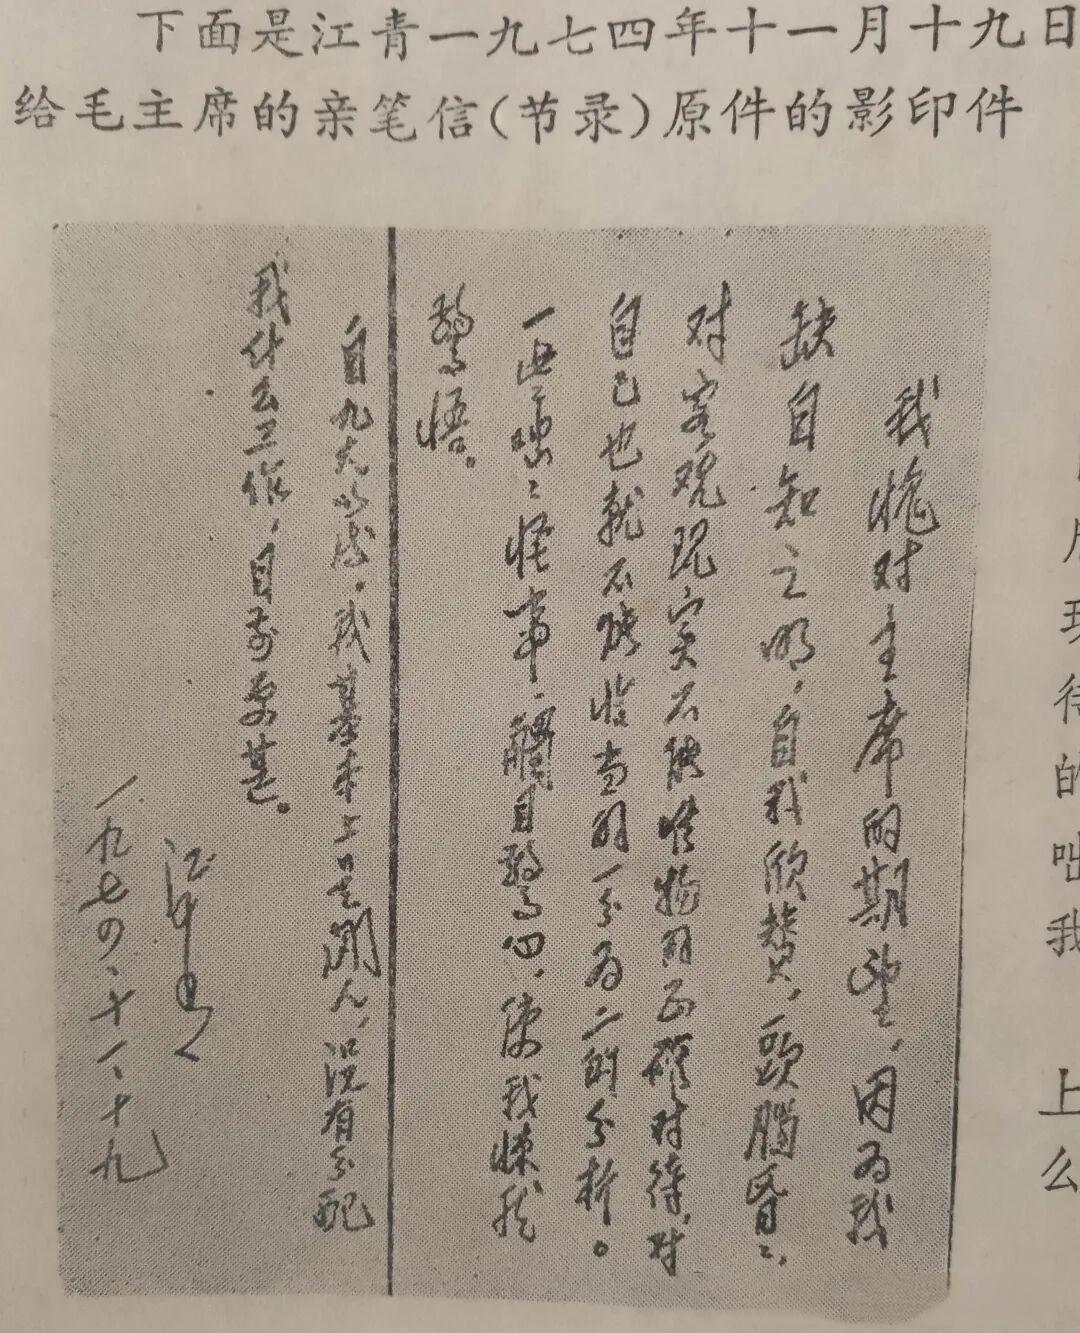 下面是江青一九七四年十一月十九日
给毛主席的亲笔信(节录)原件的影印件
我愧对主席的期望,因为我
缺自知之明,自我欣赞,頭腦昏〻,
对客观现实不能惟物的正確对待,对
自己也就不能恰当的一分为二的分析。
一些咄〻怪事,觸目驚心,使我悚然
驚悟。
自九大以后,我基本上是闲人,没有分配
我什么工作,目前更甚。
江青
一九七四、十一、十九